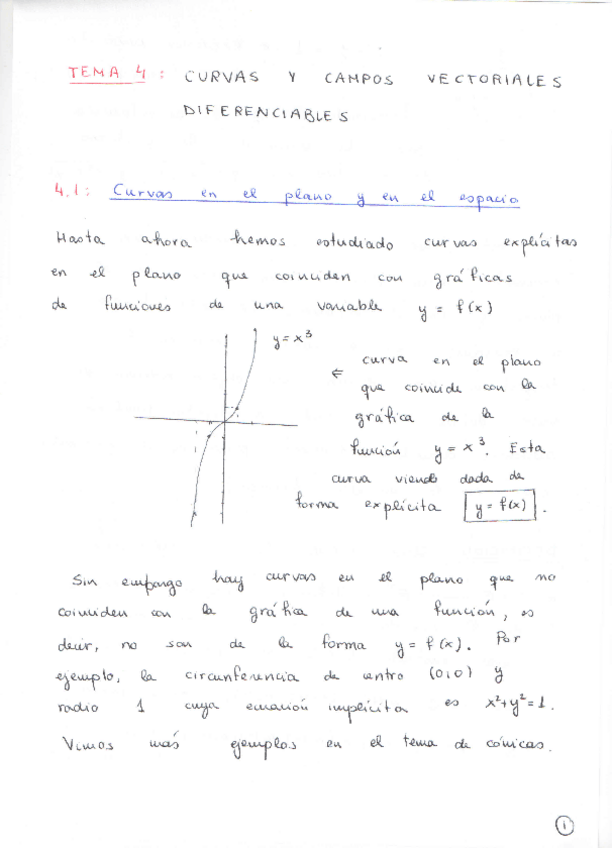 TEMA 4 : CURVAS Y CAMPOS VECTORIALES
DIFERENCIABLES
4.1: Curvas en el plano y en el espacio
Hasta ahora hemos estudiado curvas explícitas
en el plano que coinciden con gráficas
de funciones de una variable y = f(x)
y = x³
⇐ curva en el plano
que coincide con la
gráfica de la
función y = x³. Esta
curva viene dada de
forma explícita y = f(x) .
Sin embargo hay curvas en el plano que no
coinciden con la gráfica de una función, es
decir, no son de la forma y = f(x). Por
ejemplo, la circunferencia de centro (0,0) y
radio 1 cuya ecuación implícita es x²+y²=1.
Vimos más ejemplos en el tema de cónicas.
1